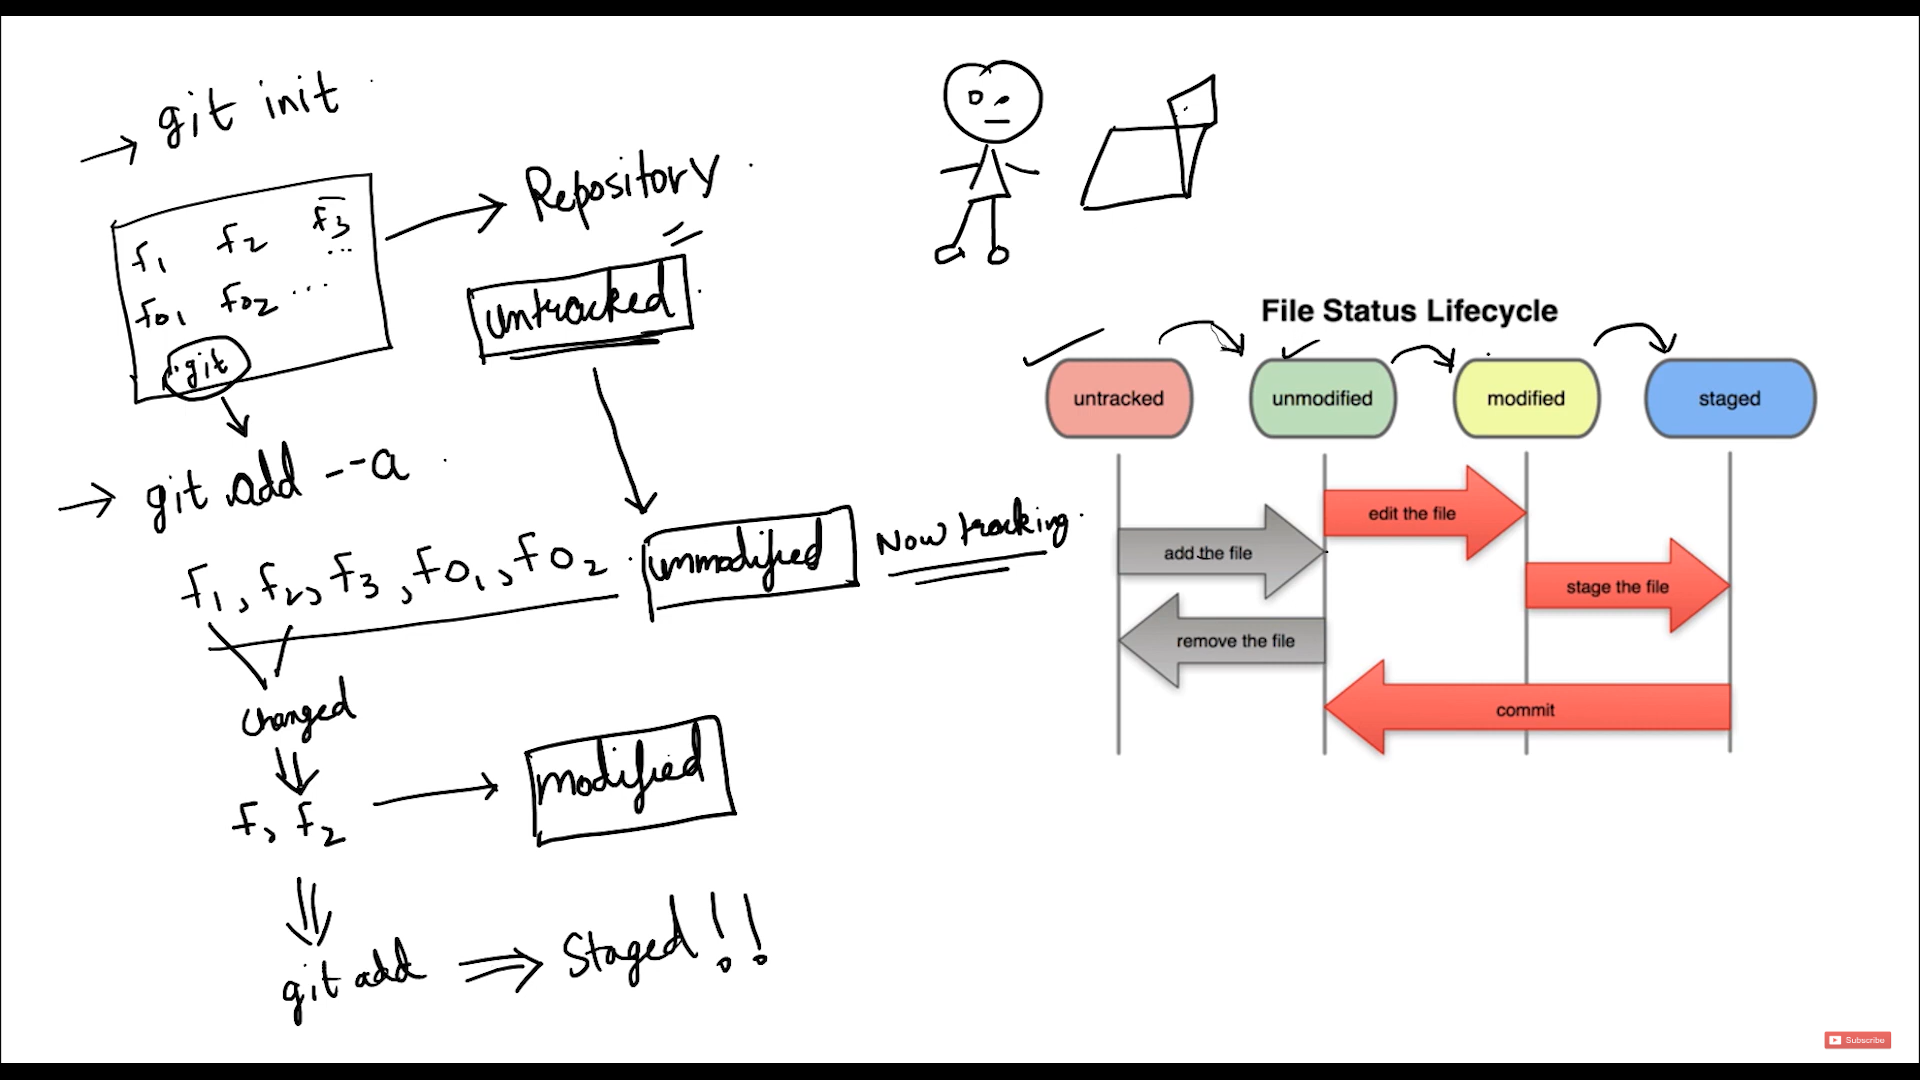 → git init
f1 f2 f3 ...
f01 f02 ...
.git
→ Repository
untracked
→ git add --a
f1, f2, f3, f01, f02
unmodified
Now tracking.
changed
f1 f2 → modified
git add ⇒ Staged!!
File Status Lifecycle
untracked unmodified modified staged
edit the file
add the file
stage the file
remove the file
commit
Subscribe